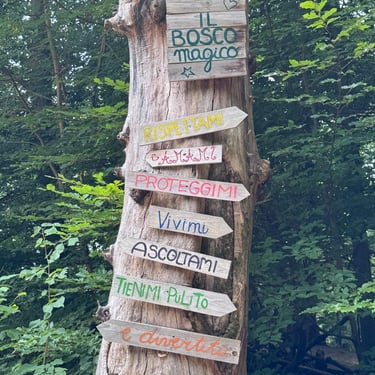 IL
BOSCO
MAGICO
RISPETTAMI
AMAMI
PROTEGGIMI
Vivimi
ASCOLTAMI
TIENIMI PULITO
e divertiti